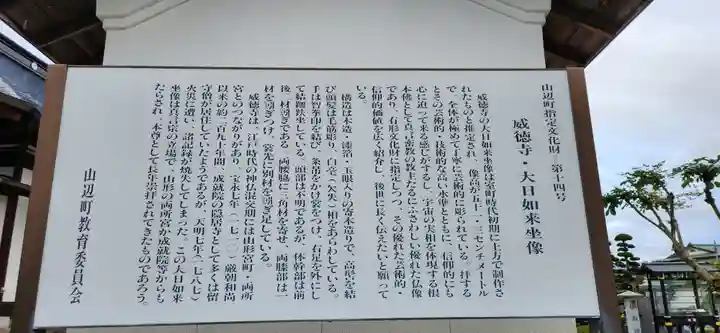 山辺町指定文化財 第十四号
威徳寺・大日如来坐像
威徳寺の大日如来坐像は室町時代初期に上方で制作さ
れたものと推定され、像高が五十一・三センチメートル
で、全体が極めて丁寧に芸術的に彫られている。拝する
とその芸術的・技術的な高い水準とともに、信仰的にも
心に迫って来る感じがするし、宇宙の実相を体現する根
本佛として真言密教の教主たるにふさわしい優れた仏像
であり、有形文化財に指定しつつ、その優れた芸術的・
信仰的価値を広く紹介し、後世に長く伝えたいと願って
いる。
構造は木造・漆箔・玉眼入りの寄木造りで、高髻を結
び頭髪は毛筋彫り、白毫（欠失）相をあらわしている。
手は智拳印を結び、条帛をかけ裳をつけ、右足を外にし
て結跏趺坐している。頭部は不明であるが、体幹部は前
後二材矧ぎである。両腰脇に三角材を寄せ、両膝部は一
材を矧ぎつけ、裳先に別材を矧ぎ足している。
威徳寺は、江戸時代の神仏混交期には山形宮町・両所
宮とのつながりがあり、宝永七年（一七一〇）厳朝和尚
以来の約二百九十年間、成就院の隠居寺として多くは留
守僧が居住していたようであるが、天明七年（一七八七）
火災に遭い、諸記録が焼失してしまった。この大日如来
坐像は真言宗の立場で、山形の両所宮や成就院等からも
たらされ、本尊として長年崇拝されてきたものであろう。
山辺町教育委員会